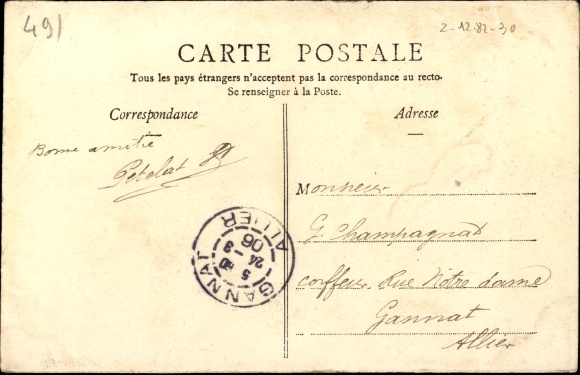 491
2-12.82-30
CARTE POSTALE
Tous les pays étrangers n'acceptent pas la correspondance au recto-
Se renseigner à la Poste.
Correspondance
Adresse
Bonne amitié
Petelat
Monsieur
G. Champagnat
coiffeur Rue Notre dame
Gannat
Allier
GANNAT
5 30
24 - 3
06
ALLIER